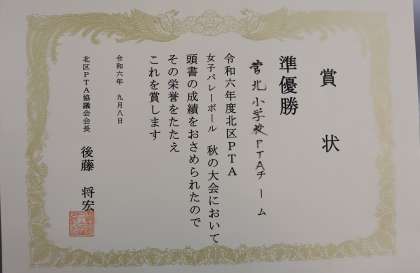 賞状
準優勝
宮北小学校PTAチーム
令和六年度北区PTA
女子バレーボール 秋の大会において
頭書の成績をおさめられたので
その栄誉をたたえ
これを賞します
令和六年 九月八日
北区PTA協議会会長 後藤 将宏